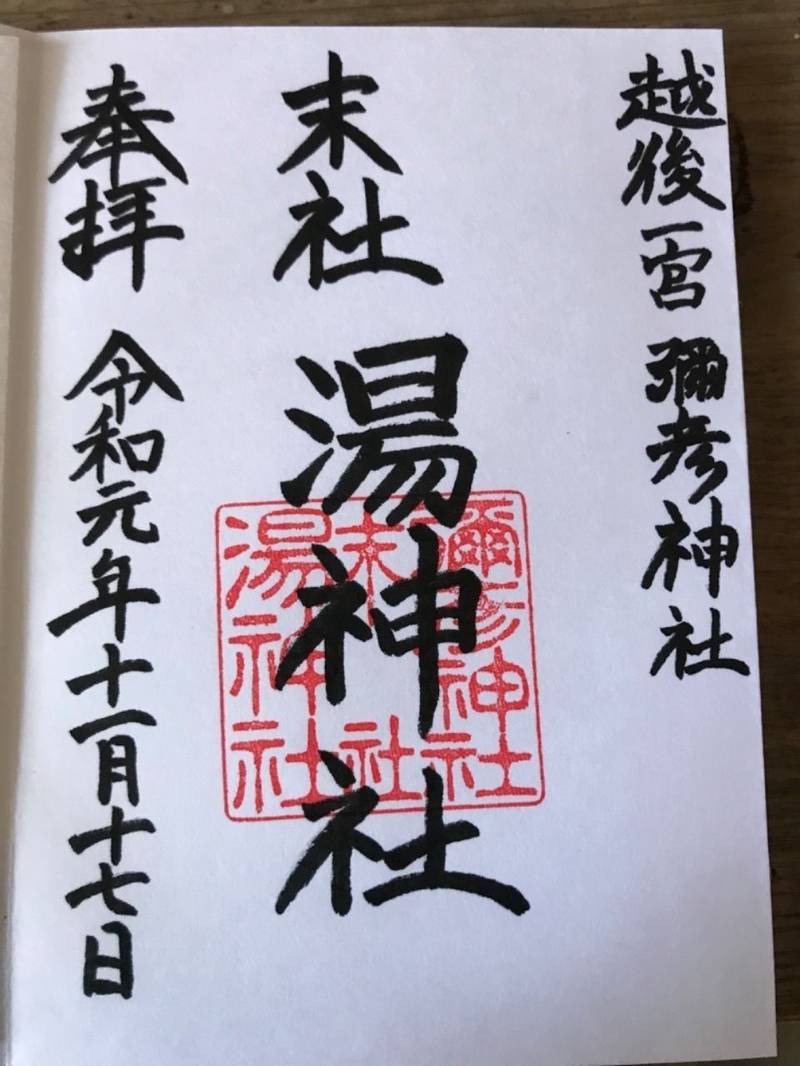 越後一宮 彌彦神社
末社 湯神社
奉拝 令和元年十一月十七日
彌彦神社
末社
湯神社